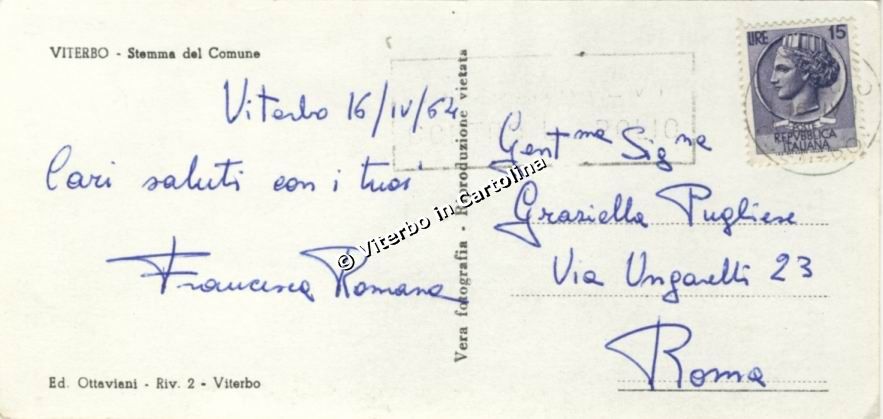 VITERBO - Stemma del Comune
Viterbo 16/IV/64
Cari saluti con i tuoi
Francesca Romana
Ed. Ottaviani - Riv. 2 - Viterbo
Vera fotografia - Riproduzione vietata
© Viterbo in Cartolina
LIRE 15
POSTE
REPVBBLICA
ITALIANA
Gent.ma Sig.na
Graziella Pugliese
Via Ungarelli 23
Roma